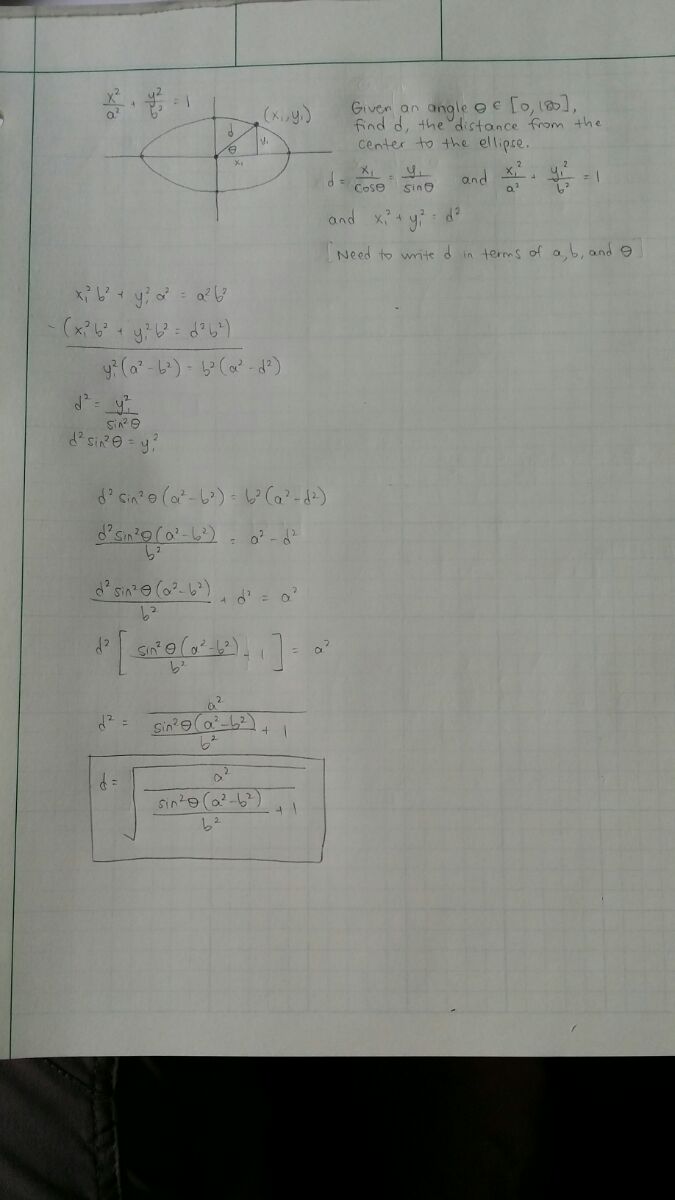 x²/a² + y²/b² = 1
(x₁, y₁)
d
y₁
θ
x₁
Given an angle θ ∈ [0, 180],
find d, the distance from the
center to the ellipse.
d = x₁/cosθ = y₁/sinθ and x₁²/a² + y₁²/b² = 1
and x₁² + y₁² = d²
[Need to write d in terms of a, b, and θ]
x₁²b² + y₁²a² = a²b²
-(x₁²b² + y₁²b² = d²b²)
y₁²(a² - b²) = b²(a² - d²)
d² = y₁²/sin²θ
d² sin²θ = y₁²
d² sin²θ (a² - b²) = b²(a² - d²)
d² sin²θ (a² - b²)/b² = a² - d²
d² sin²θ (a² - b²)/b² + d² = a²
d² [sin²θ (a² - b²)/b² + 1] = a²
d² = a²/(sin²θ (a² - b²)/b² + 1)
d = √(a²/(sin²θ (a² - b²)/b² + 1))